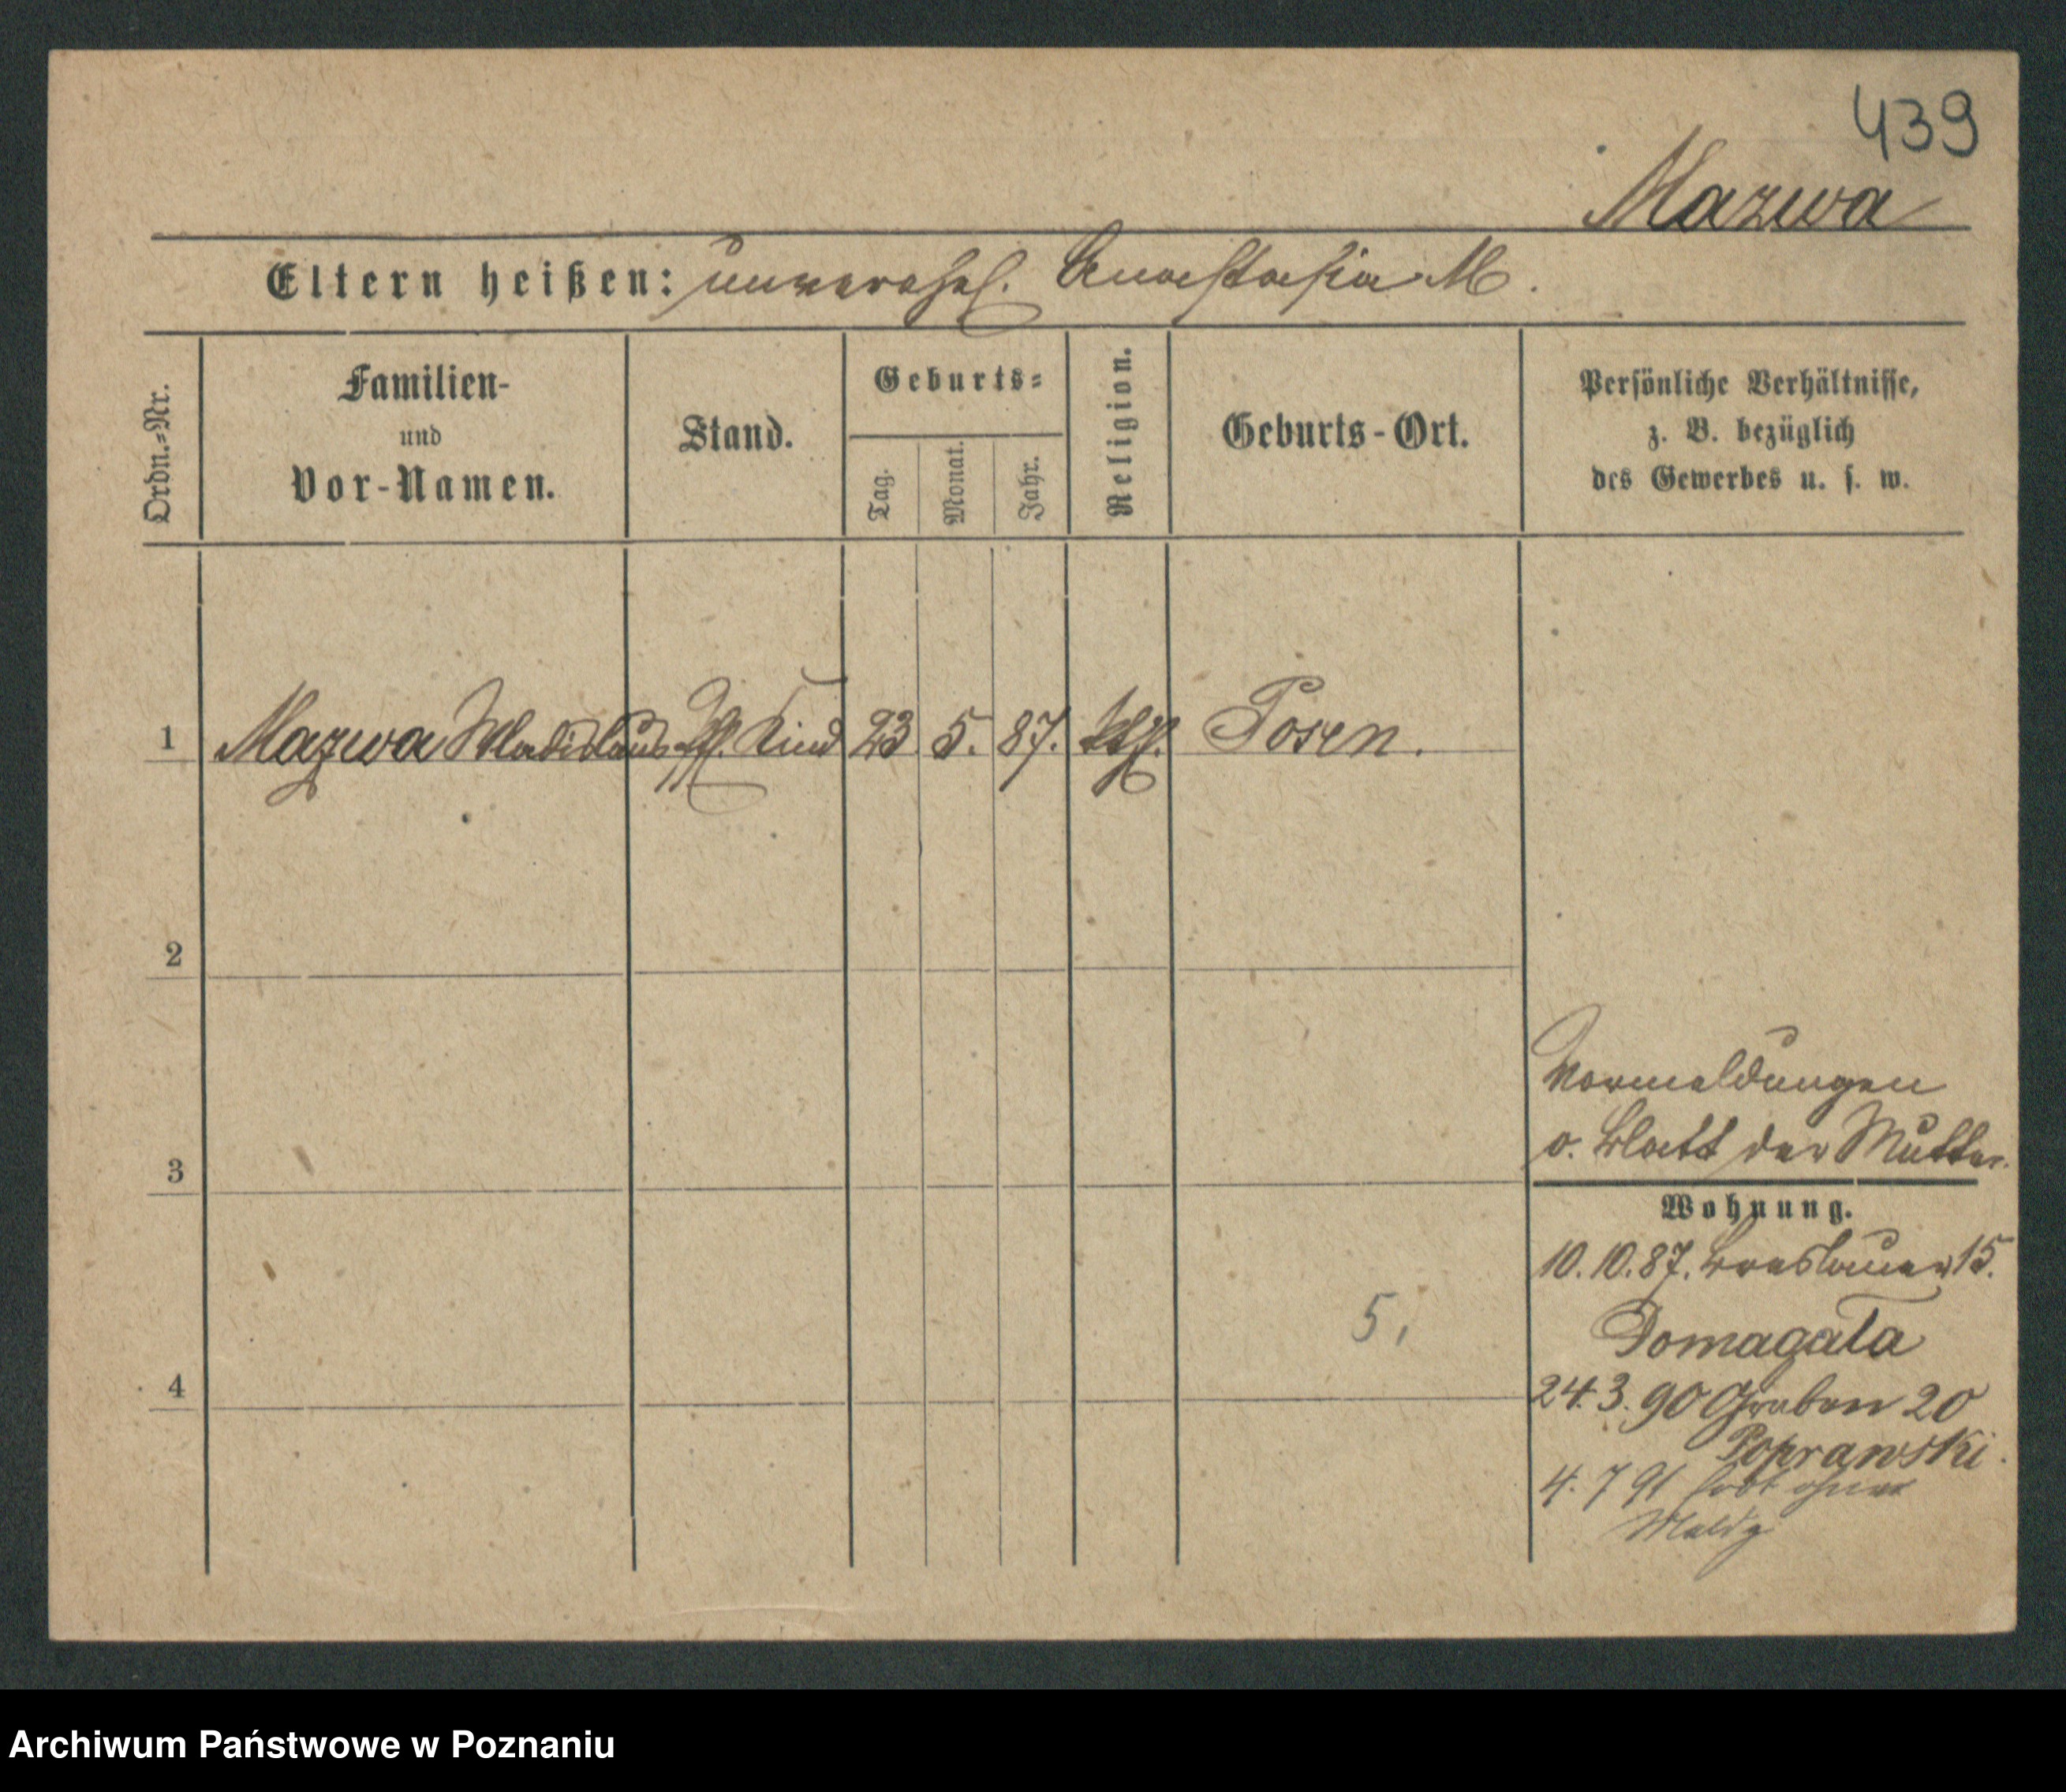 439
Mazwa
Eltern heißen: unverehel. Anastasia M.
Ordn.=Nr.
Familien-
und
Vor-Namen.
Stand.
Geburts=
Tag.
Monat.
Jahr.
Religion.
Geburts-Ort.
Persönliche Verhältnisse,
z. B. bezüglich
des Gewerbes u. s. w.
1 Mazwa Wladislaus Kind 23 5. 87. kth. Posen.
2
3
4
Vormeldungen
v. Blatt der Mutter.
Wohnung.
10.10.87. Breslauer 15.
Domagała
5.
24.3.90 Graben 20
Poprawski.
4.7 91 fort ohne
Meldg
Archiwum Państwowe w Poznaniu